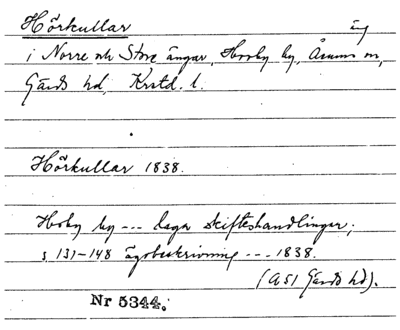 Hörkullar äng
i Norre och Store ängar, Horby by, Åsums sn,
Gärds hd, Krstd. l.
Hörkullar 1838.
Horby by --- laga skifteshandlingar;
s 131-148 ägobeskrivning --- 1838.
(A 51 Gärds hd).
Nr 5344.